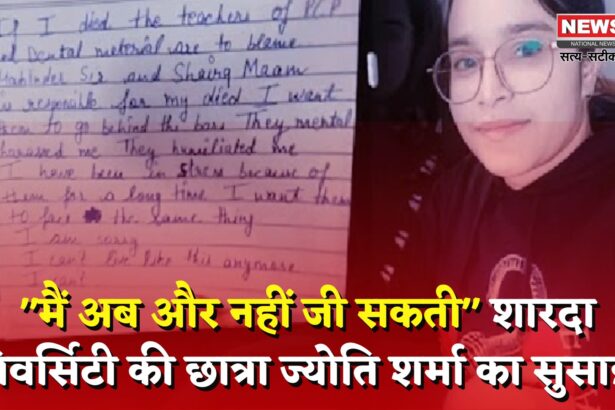 If I died the teachers of PCP
Dental material are to blame
Sir and Shairg Maam
is responsible for my died I want
them to go behind the bars They mental
harassed me They humiliated me
I have been in stress because of
them for a long time I want them
to face the same thing
I am sorry
I can't live like this anymore
I can't
NEWS
NATIONAL NEWS
सत्य-सटीक
"मैं अब और नहीं जी सकती" शारदा
िवर्सिटी की छात्रा ज्योति शर्मा का सुसा